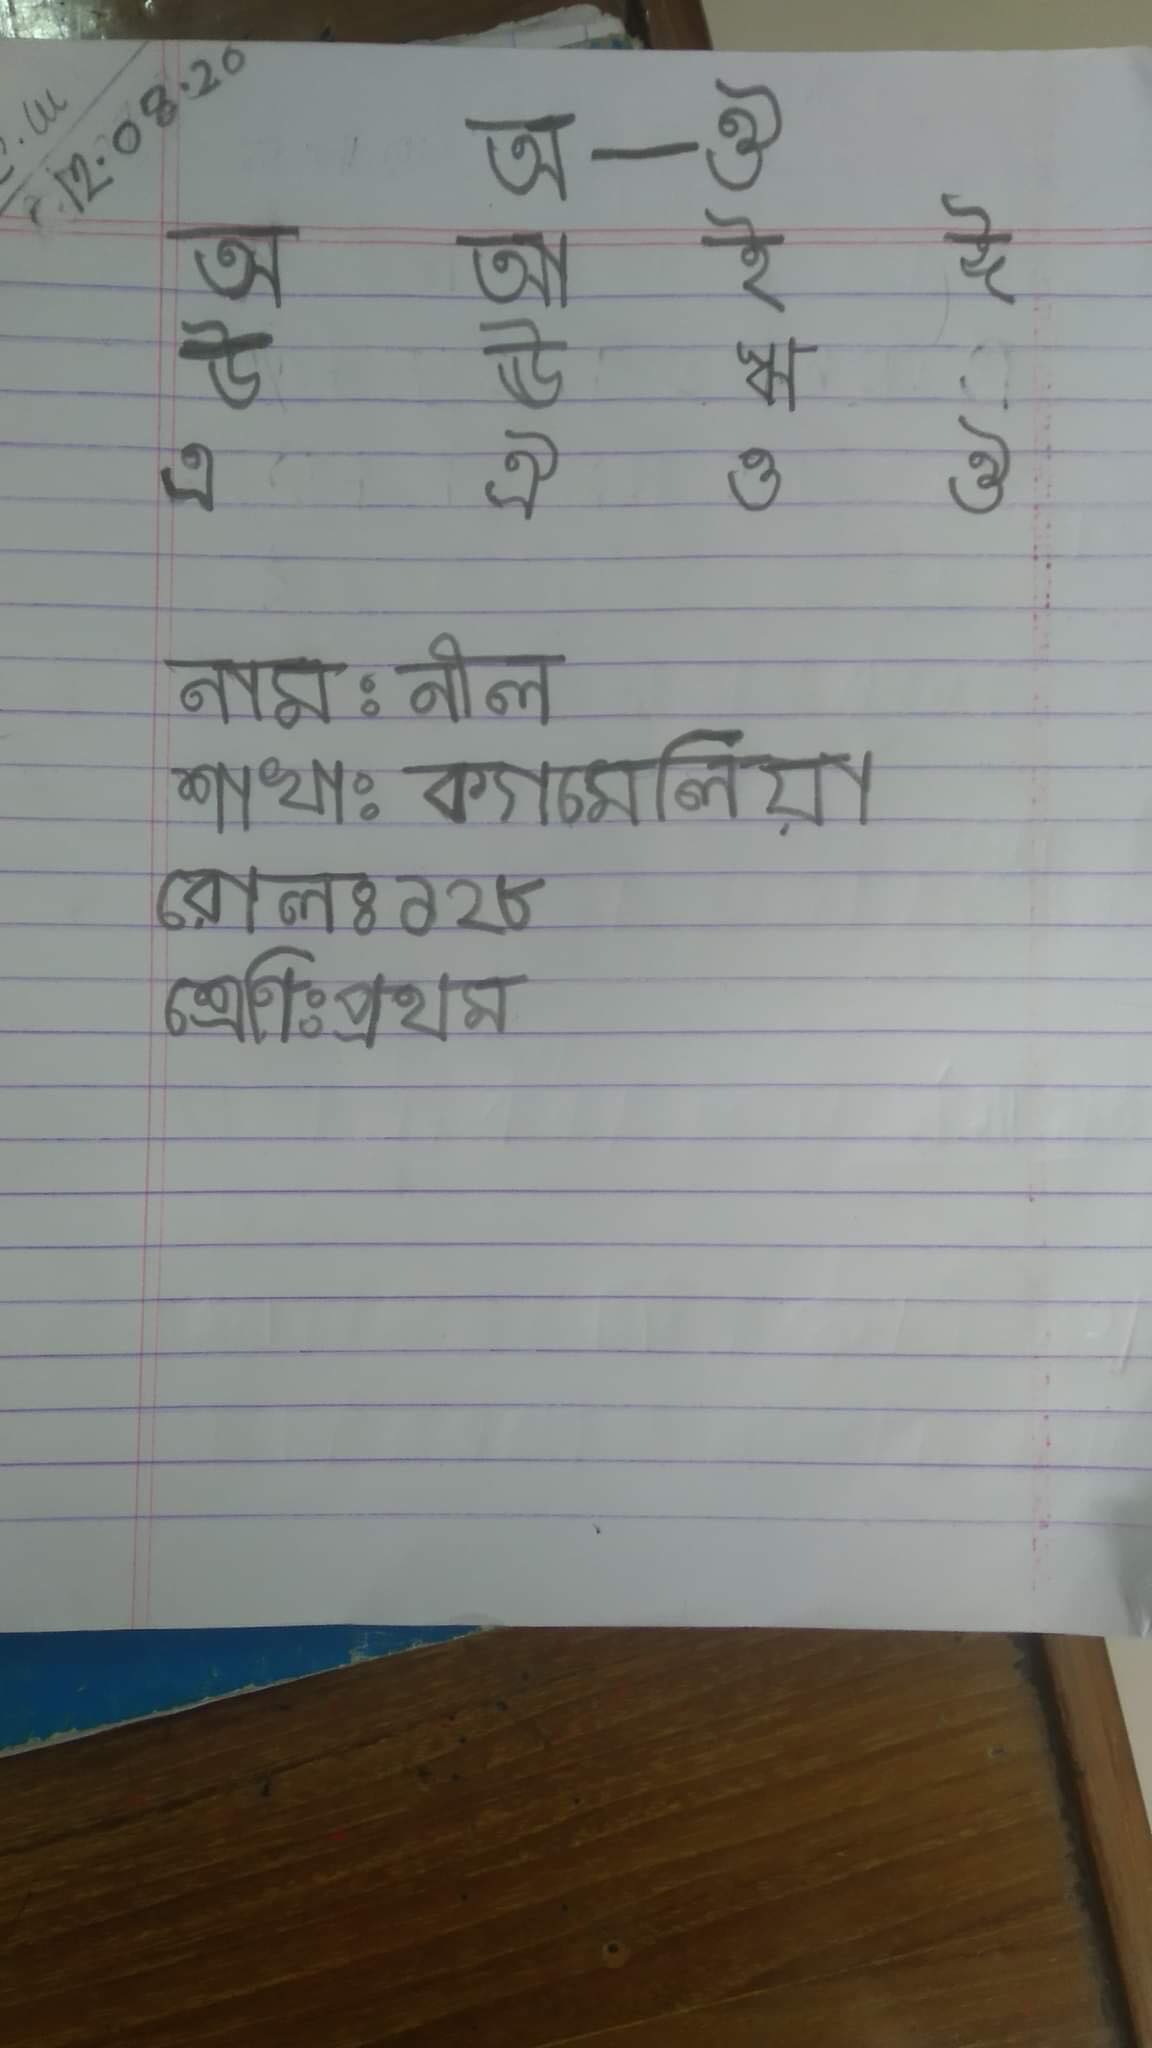 12.08.20
অ — ঔ
অ আ ই ঈ
উ ঊ ঋ
এ ঐ ও ঔ
নামঃ নীল
শাখাঃ ক্যামেলিয়া
রোলঃ ১২৮
শ্রেণিঃ প্রথম